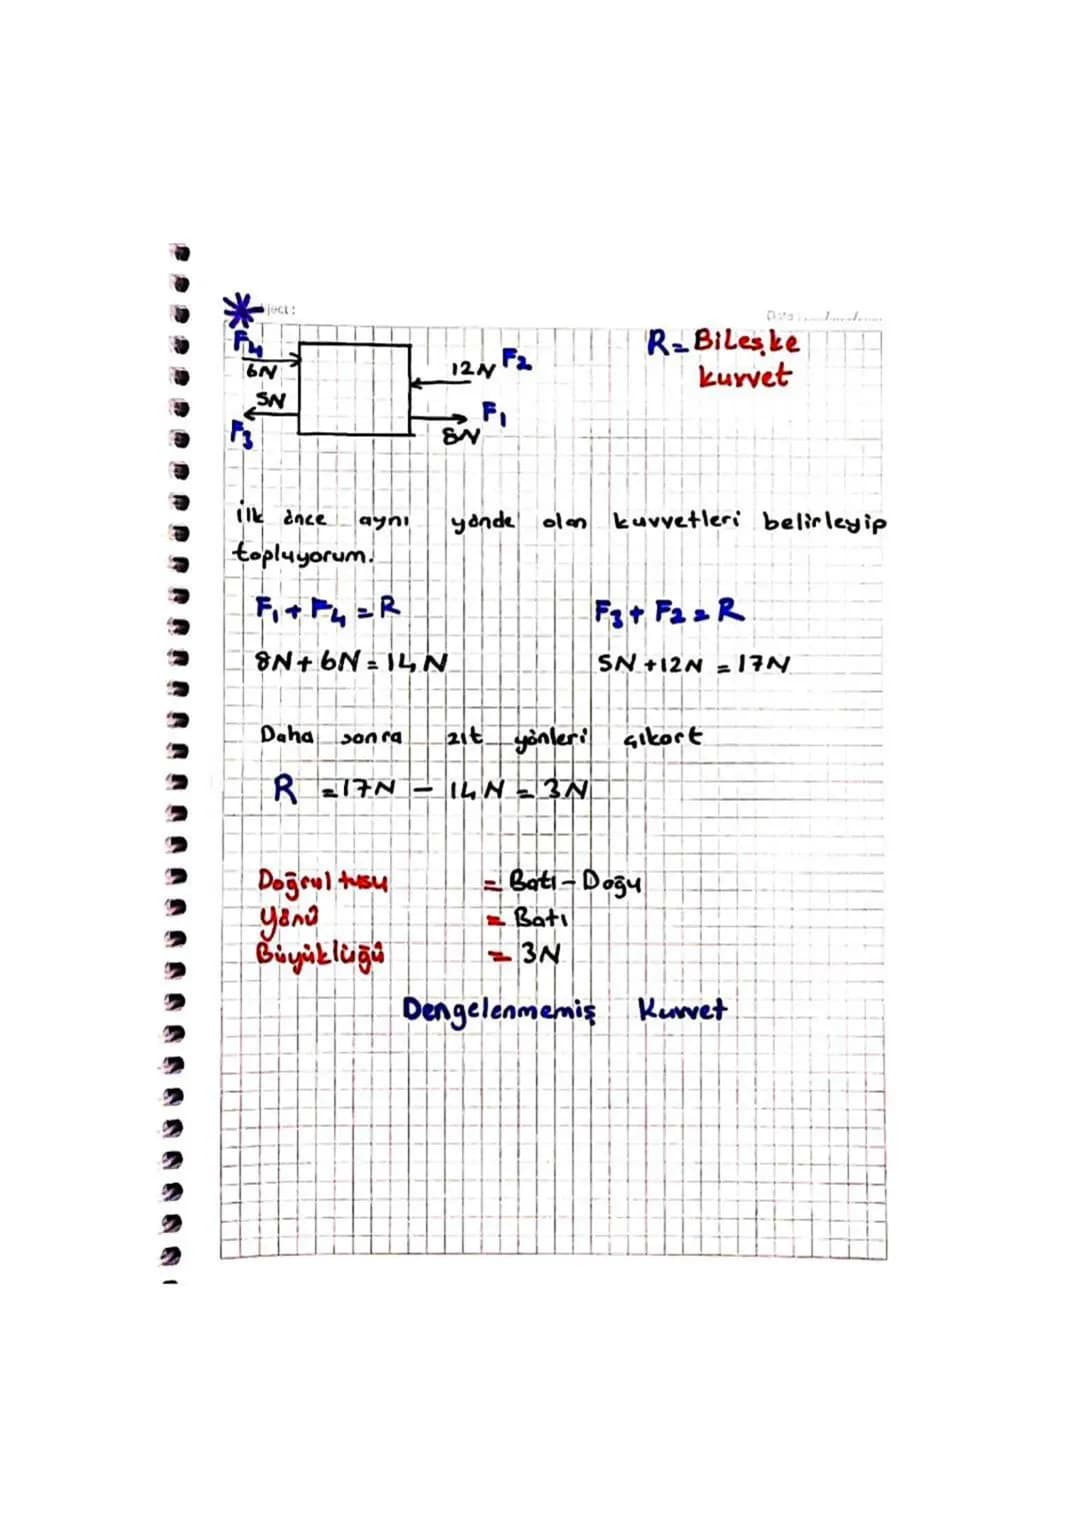 ject:
Date:
F4
6N
5N
F3
12N F2
F1
8N
R= Bileşke
kuvvet
ilk önce aynı yönde olan kuvvetleri belirleyip
topluyorum.
F1 + F4 = R
F3 + F2 = R
8N + 6N = 14N
5N + 12N = 17N
Daha sonra zıt yönleri çıkart
R = 17N - 14N = 3N
Doğrultusu = Batı-Doğu
Yönü = Batı
Büyüklüğü = 3N
Dengelenmemiş Kuvvet